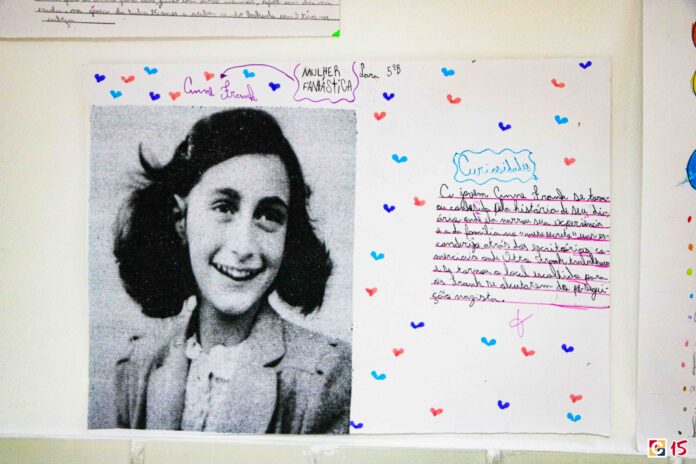 cabeça
Anne Frank
MULHER
FANTÁSTICA
Lara 5ºB
Curiosidades
A jovem Anne Frank se torn
ou conhecida pela história de seu di-
ário, onde da narrou sua experiência
e a da família no "anexo secreto" um es-
conderijo atrás dos escritórios co-
merciais onde Otto Frank trabalhava
e se tornou o local escolhido para
os Frank se ocultarem da persegui-
ção nazista.
15